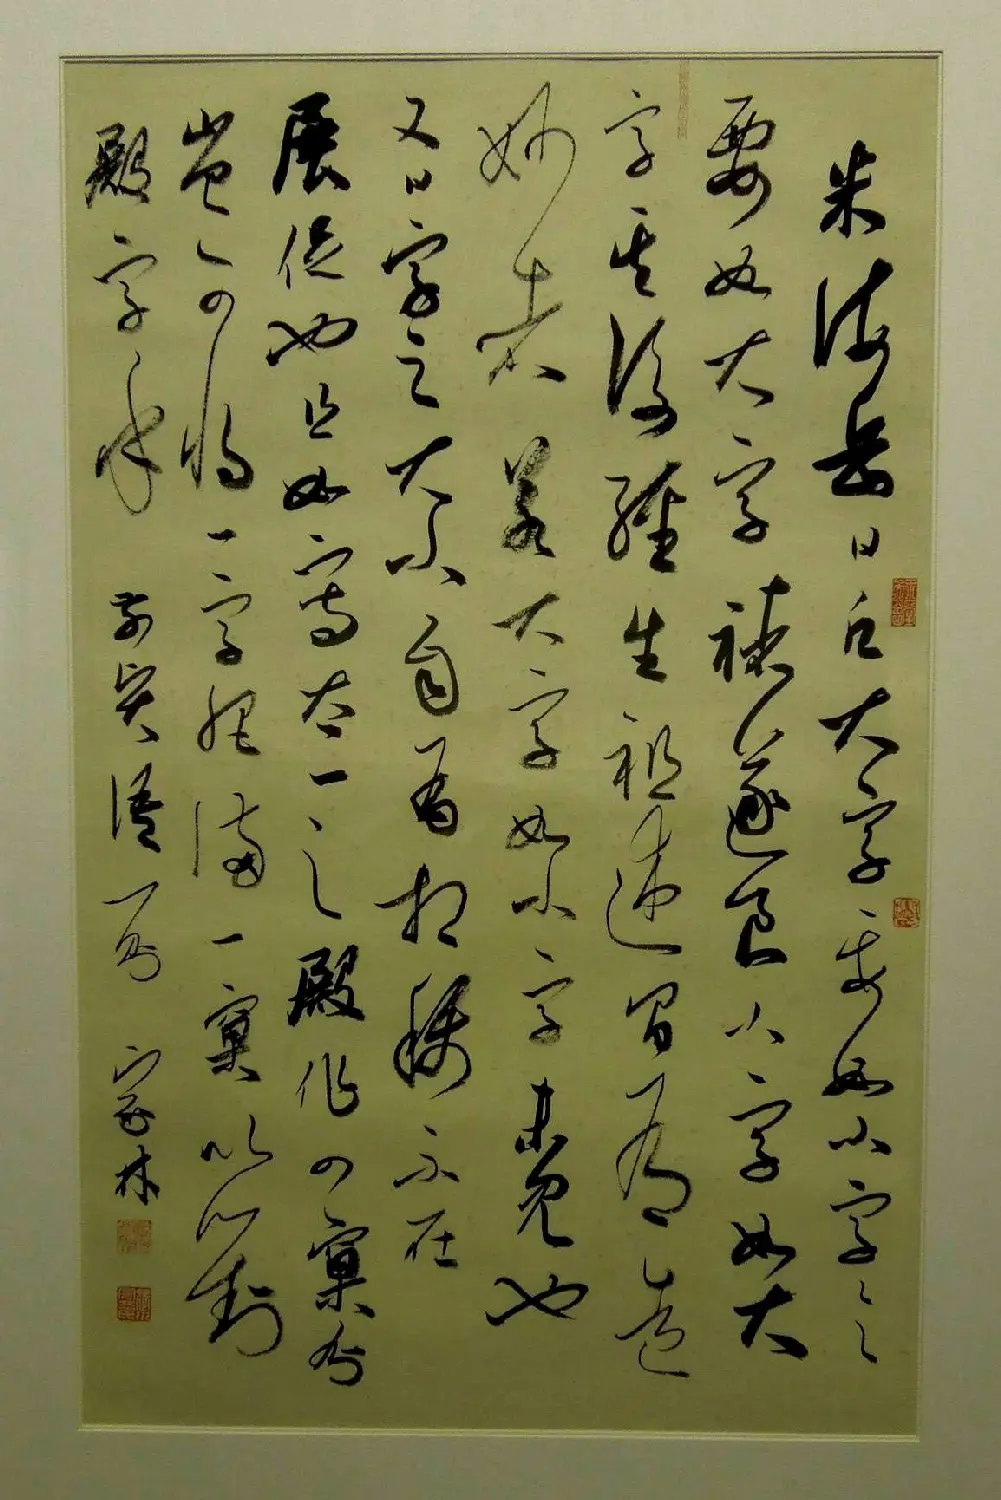 米海岳曰凡大字要如小字〻〻
要如大字褚遂良小字如大
字其後經生祖述間有造
妙者若大字如小字未見也
又曰字之大小自有相稱不在
展促也且如寫太一之殿作四窠分
豈可將一字肥滿一窠以對
殿字乎
林